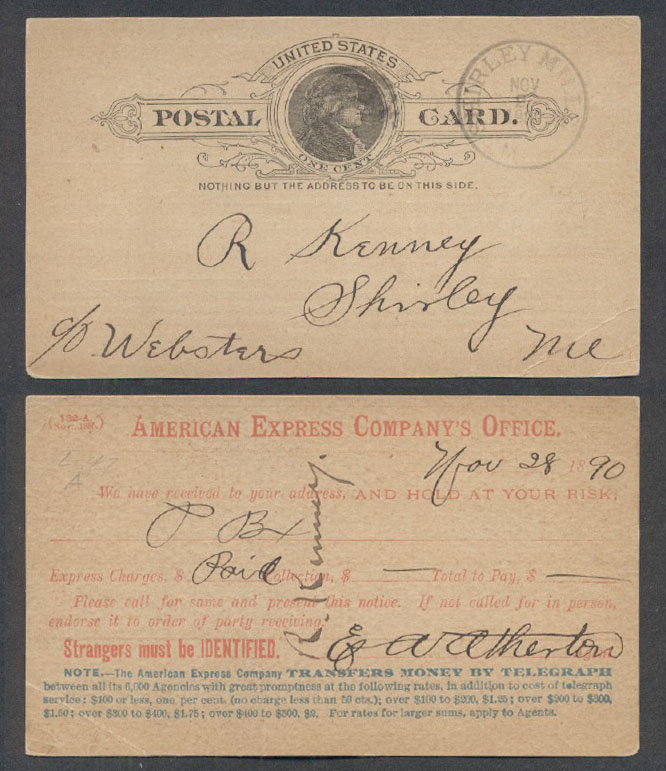 UNITED STATES
POSTAL CARD.
ONE CENT
SHIRLEY MILL
NOV
NOTHING BUT THE ADDRESS TO BE ON THIS SIDE.
R Kenney
Shirley
c/o Websters Me
132-A.
AMERICAN EXPRESS COMPANY'S OFFICE.
Nov 28 1890
We have received to your address, AND HOLD AT YOUR RISK,
P Bx
Express Charges, $ Paid Collection, $ — Total to Pay, $ —
Please call for same and present this notice. If not called for in person,
endorse it to order of party receiving.
R. Kenney
Strangers must be IDENTIFIED. E A Atherton
NOTE.—The American Express Company TRANSFERS MONEY BY TELEGRAPH
between all its 6,000 Agencies with great promptness at the following rates, in addition to cost of telegraph
service: $100 or less, one per cent. (no charge less than 50 cts.); over $100 to $200, $1.25; over $200 to $300,
$1.50; over $300 to $400, $1.75; over $400 to $500, $2. For rates for larger sums, apply to Agents.